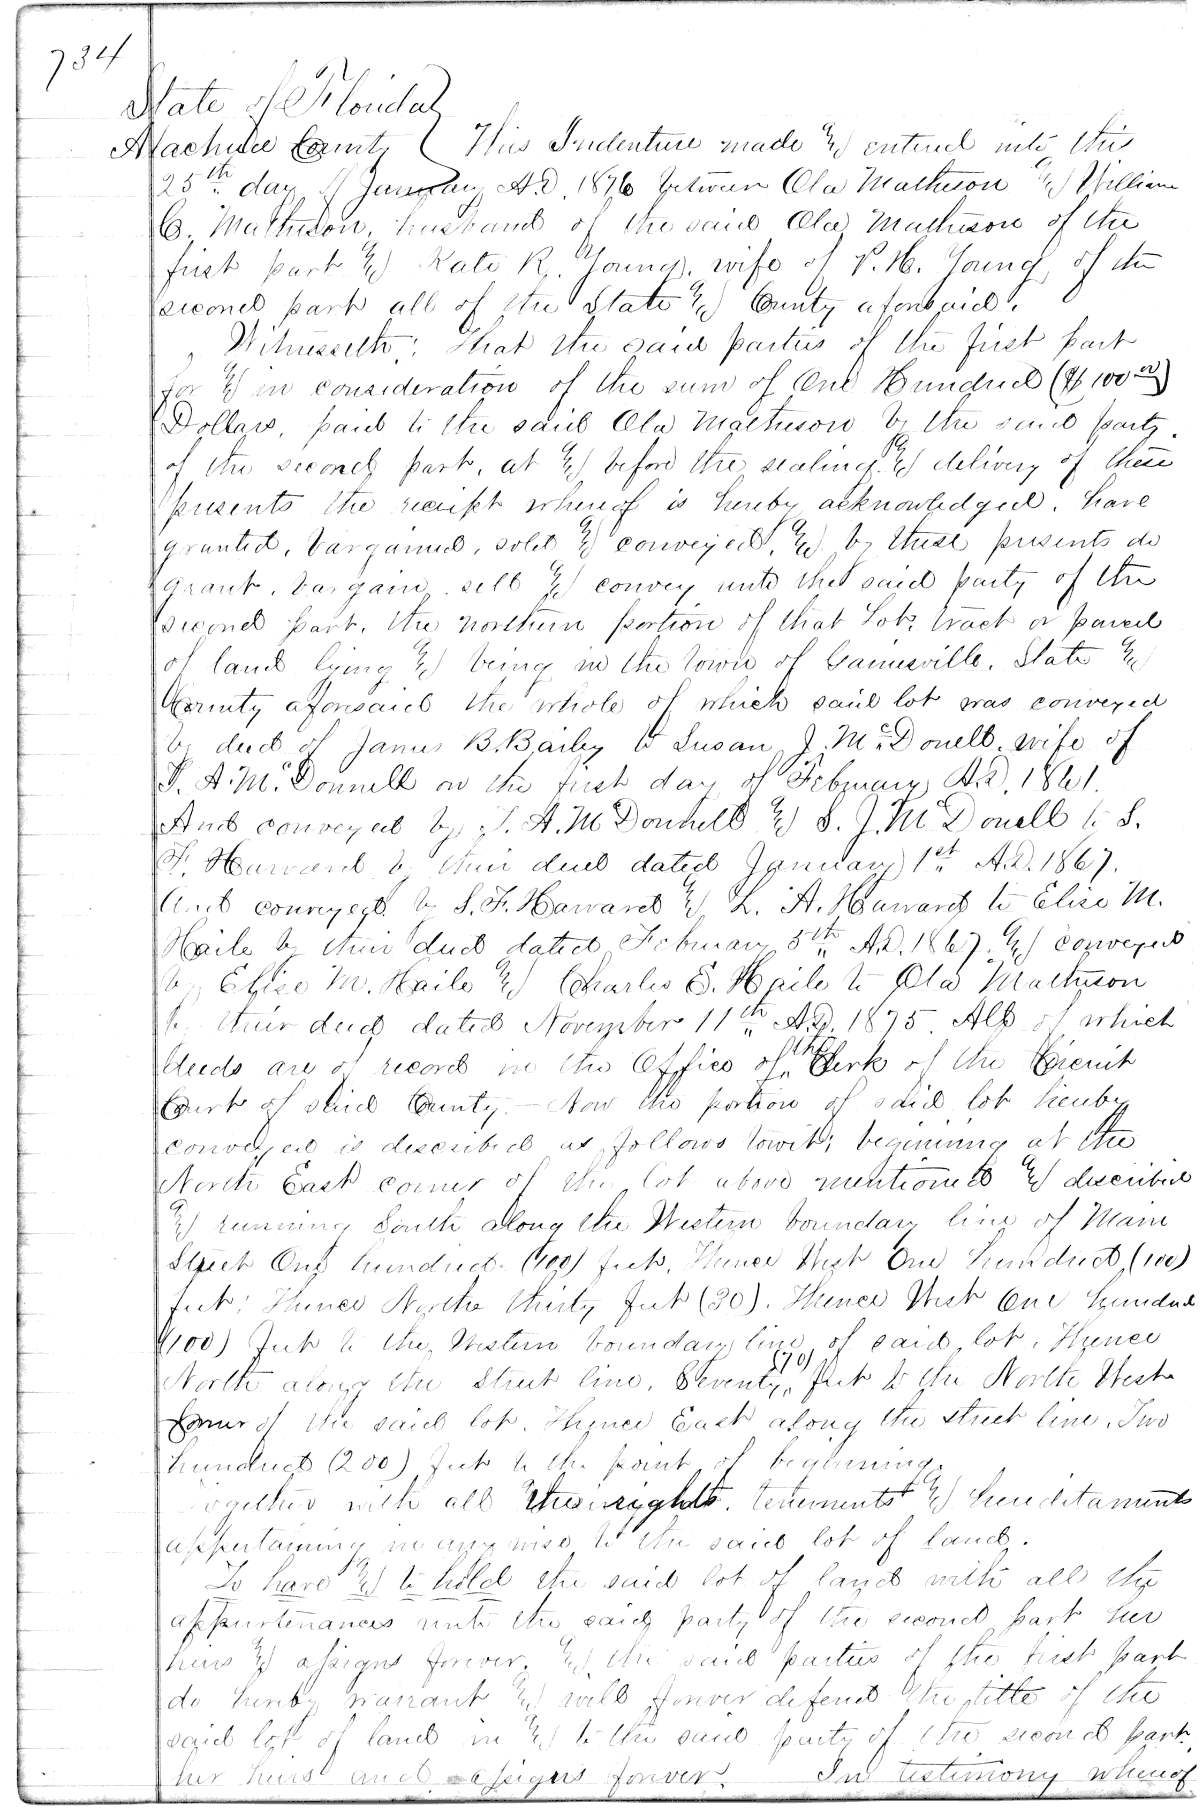 734
State of Florida
Alachua County } This Indenture made & entered into this
25th day of January A.D. 1876 between Ola Matheson & William
C. Matheson, husband of the said Ola Matheson of the
first part & Kate R. Young, wife of P. H. Young, of the
second part all of the State & County aforesaid.
Witnesseth: That the said parties of the first part
for & in consideration of the sum of One Hundred ($100.00)
Dollars, paid to the said Ola Matheson by the said party
of the second part, at & before the sealing & delivery of these
presents the receipt whereof is hereby acknowledged, have
granted, bargained, sold & conveyed, & by these presents do
grant, bargain, sell & convey unto the said party of the
second part, the northern portion of that Lot, tract or parcel
of land lying & being in the town of Gainesville, State &
County aforesaid the whole of which said lot was conveyed
by deed of James B. Bailey to Susan J. McDonell, wife of
T. A. McDonnell on the first day of February A.D. 1861.
And conveyed by T. A. McDonnell & S. J. McDonell to S.
F. Harvard by their deed dated January 1st A.D. 1867.
And conveyed by S. F. Harvard & L. A. Harvard to Elise M.
Haile by their deed dated February 5th A.D. 1867. & conveyed
by Elise M. Haile & Charles E. Haile to Ola Matheson
by their deed dated November 11th A.D. 1875. All of which
deeds are of record in the Office of the Clerk of the Circuit
Court of said County.— Now the portion of said lot hereby
conveyed is described as follows towit; beginning at the
North East corner of the lot above mentioned & described
& running South along the Western boundary line of Main
Street One hundred (100) feet, Thence West One hundred (100)
feet; Thence North thirty feet (30). Thence West One hundred
(100) feet to the Western boundary line of said lot, Thence
North along the Street line, Seventy (70) feet to the North West
Corner of the said lot. Thence East along the street line, Two
hundred (200) feet to the point of beginning.
Together with all the rights, tenements & hereditaments
appertaining in any wise to the said lot of land.
To have & to hold the said lot of land with all the
appurtenances unto the said party of the second part her
heirs & assigns forever. & the said parties of the first part
do hereby warrant & will forever defend the title of the
said lot of land in & to the said party of the second part,
her heirs and assigns forever. In testimony whereof